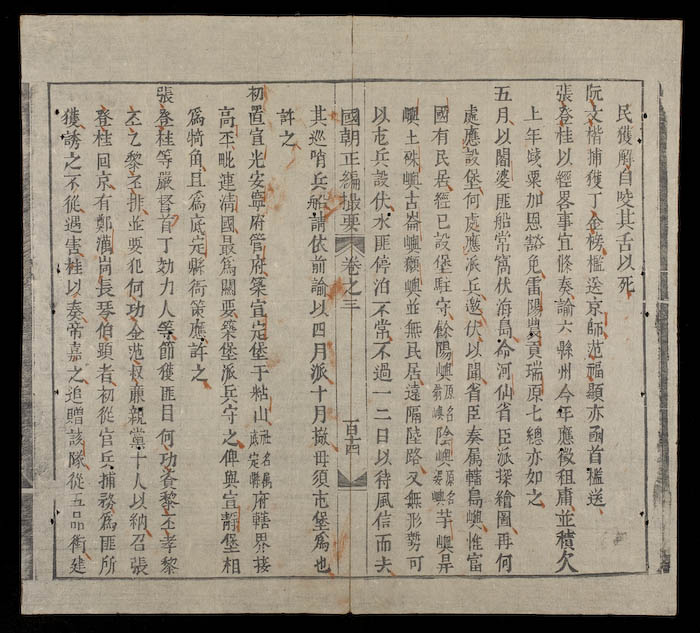 民獲解自咬其舌以死
阮文楷捕獲丁金榜檻送京師范福顯亦函首檻送
張登桂以經畧事宜條奏諭六縣州今年應徵租庸並積欠
上年歲粟加恩豁免雷陽農貢瑞原七總亦如之
五月以闍婆匪船常窩伏海島命河仙省臣派探繪圖再何
處應設堡何處應派兵邀伏以聞省臣奏属轄島嶼惟富
國有民居經已設堡駐守餘陽嶼原名翁嶼陰嶼原名婆嶼芋嶼昇
嶼土硃嶼古崙嶼嶼並無民居遠隔陸路又無形勢可
以屯兵設伏水匪停泊不常不過一二日以待風信而去
國朝正編撮要 卷之三 一百十四
其巡哨兵船請依前諭以四月派十月撤毋須屯堡爲也
許之
初置宜光安寧府管府築宜定堡于粘山社名属底定縣府轄界接
高平毗連清國最爲關要築堡派兵守之俾與宣靜堡相
爲犄角且爲底定縣衙策應許之
張登桂等嚴督首丁効力人等節獲匪目何功黎丕孝黎
丕乙黎丕排並要犯何功金范叔亷親黨十人以納召張
登桂回京有鄭萬崗長琴伯顕者初從官兵捕務爲匪所
獲誘之不從遇害桂以奏帝嘉之追贈該隊從五品銜建